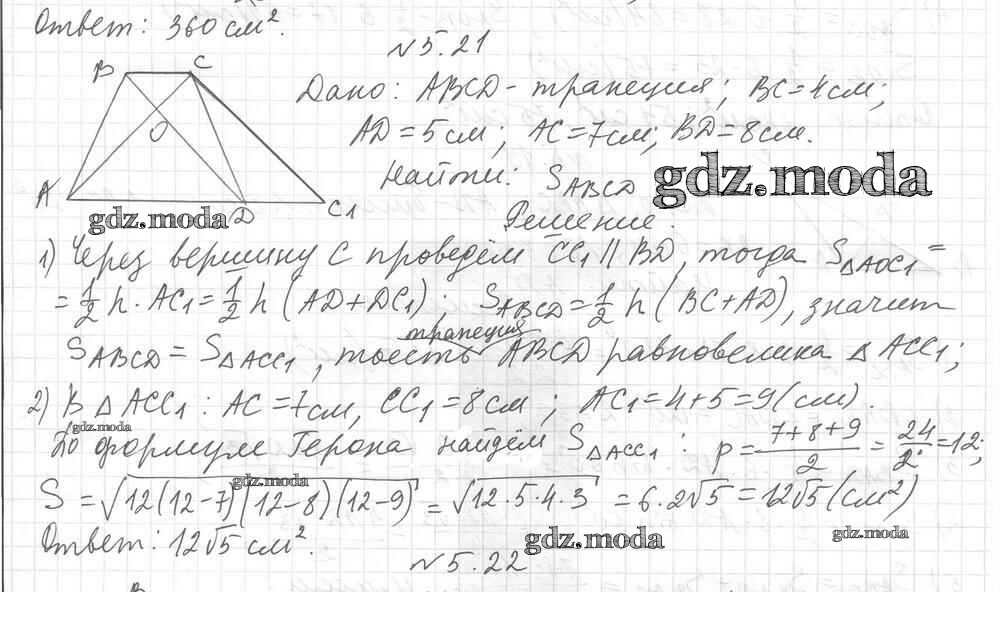 Ответ: 360 см².
N 5.21
B C
O
A D C1
Дано: ABCD - трапеция; BC=4см;
AD=5см; AC=7см; BD=8см.
Найти: S ABCD
gdz.moda
gdz.moda
Решение.
1) Через вершину C проведём CC1 || BD, тогда S△ACC1 =
= 1/2 h · AC1 = 1/2 h (AD+DC1); S ABCD = 1/2 h (BC+AD), значит
трапеция
S ABCD = S△ACC1, тоесть ABCD равновелика △ ACC1;
2) В △ ACC1: AC=7см, CC1=8см; AC1=4+5=9(см).
gdz.moda
По формуле Герона найдём S△ACC1: p = (7+8+9)/2 = 24/2 = 12;
gdz.moda
S = √12(12-7)(12-8)(12-9) = √12·5·4·3 = 6·2√5 = 12√5 (см²)
Ответ: 12√5 см².
gdz.moda
gdz.moda
N 5.22
B